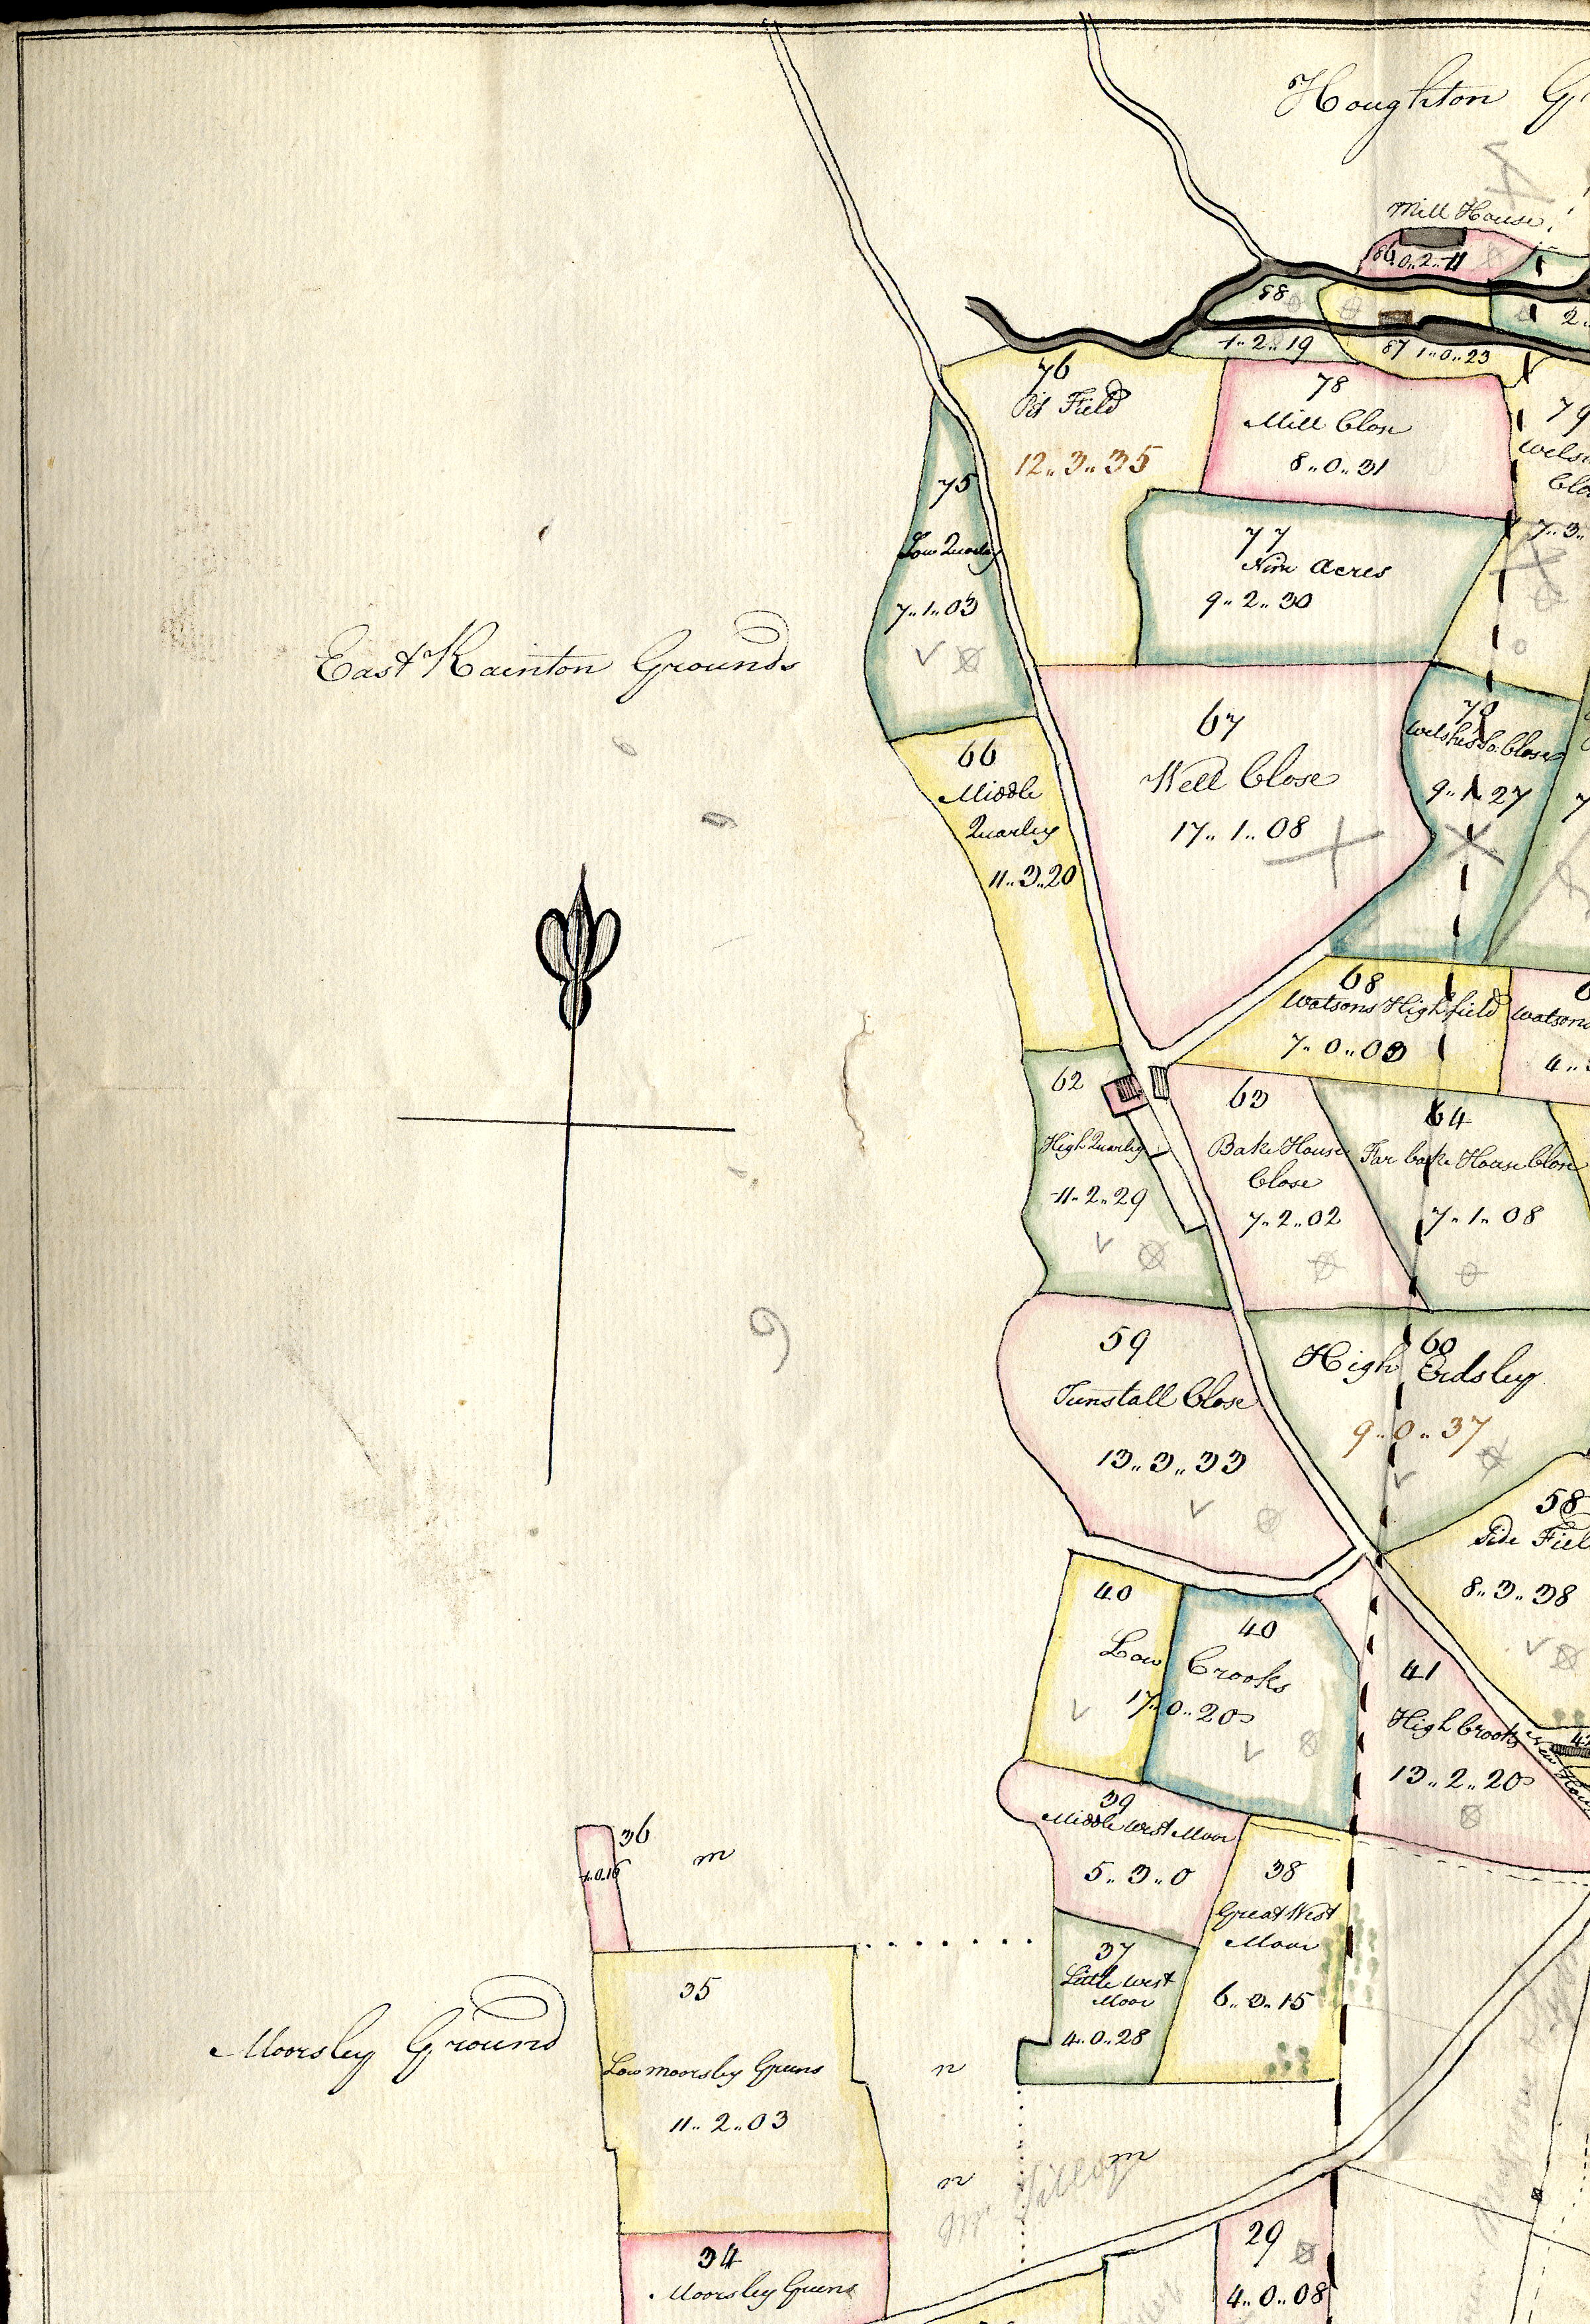 Houghton
Mill House
86
0..2..11
88
1..2..19
87 1..0..23
2..
76
Pit Field
12..3..35
78
Mill Close
8..0..31
79
7..3..
75
Low Quarley
7..1..03
77
Nine Acres
9..2..30
East Rainton Grounds
66
Middle
Quarley
11..3..20
67
Well Close
17..1..08
70
Welshes So. Close
9..1..27
68
Watsons Highfield
7..0..03
Watsons
4..
62
High Quarley
11..2..29
63
Bake House
Close
7..2..02
64
Far bake House Close
7..1..08
59
Tunstall Close
13..3..33
60
High Eidsley
9..0..37
58
Side Fiel
8..3..38
40
40
Low Crooks
17..0..20
41
High Crooks
13..2..20
42
39
Middle West Moor
5..3..0
38
Great West
Moor
6..0..15
37
Little West
Moor
4..0..28
36
1..0..16
m
35
Low moorsley Greens
11..2..03
Moorsley Ground
n
n
m
34
Moorsley Greens
29
4..0..08